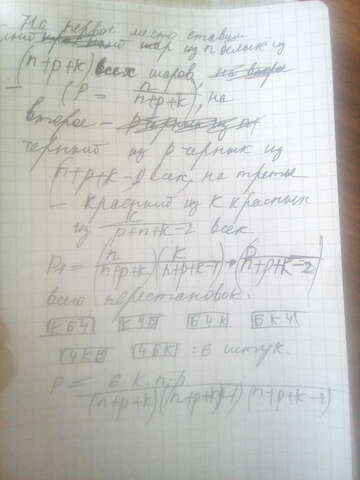 На первое место ставим
белый шар из n белых из
(n+p+k) всех шаров
(P = n/(n+p+k)), на
второе –
черный из p черных из
(n+p+k-1) всех, на третье
– красный из k красных
из k/(p+n+k-2) всех
P₁ = (n/(n+p+k)) (k/(n+p+k-1)) · (p/(n+p+k-2))
всего перестановок.
КБЧ КЧБ БЧК БКЧ
ЧКБ ЧБК : 6 штук.
P = 6·k·n·p/((n+p+k)(n+p+k-1)(n+p+k-2))